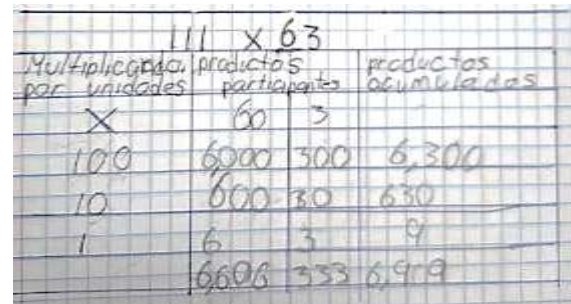 111 x 63
Multiplicando por unidades productos participantes productos acumulados
X 60 3
100 6,000 300 6,300
10 600 30 630
1 6 3 9
6,606 333 6,939